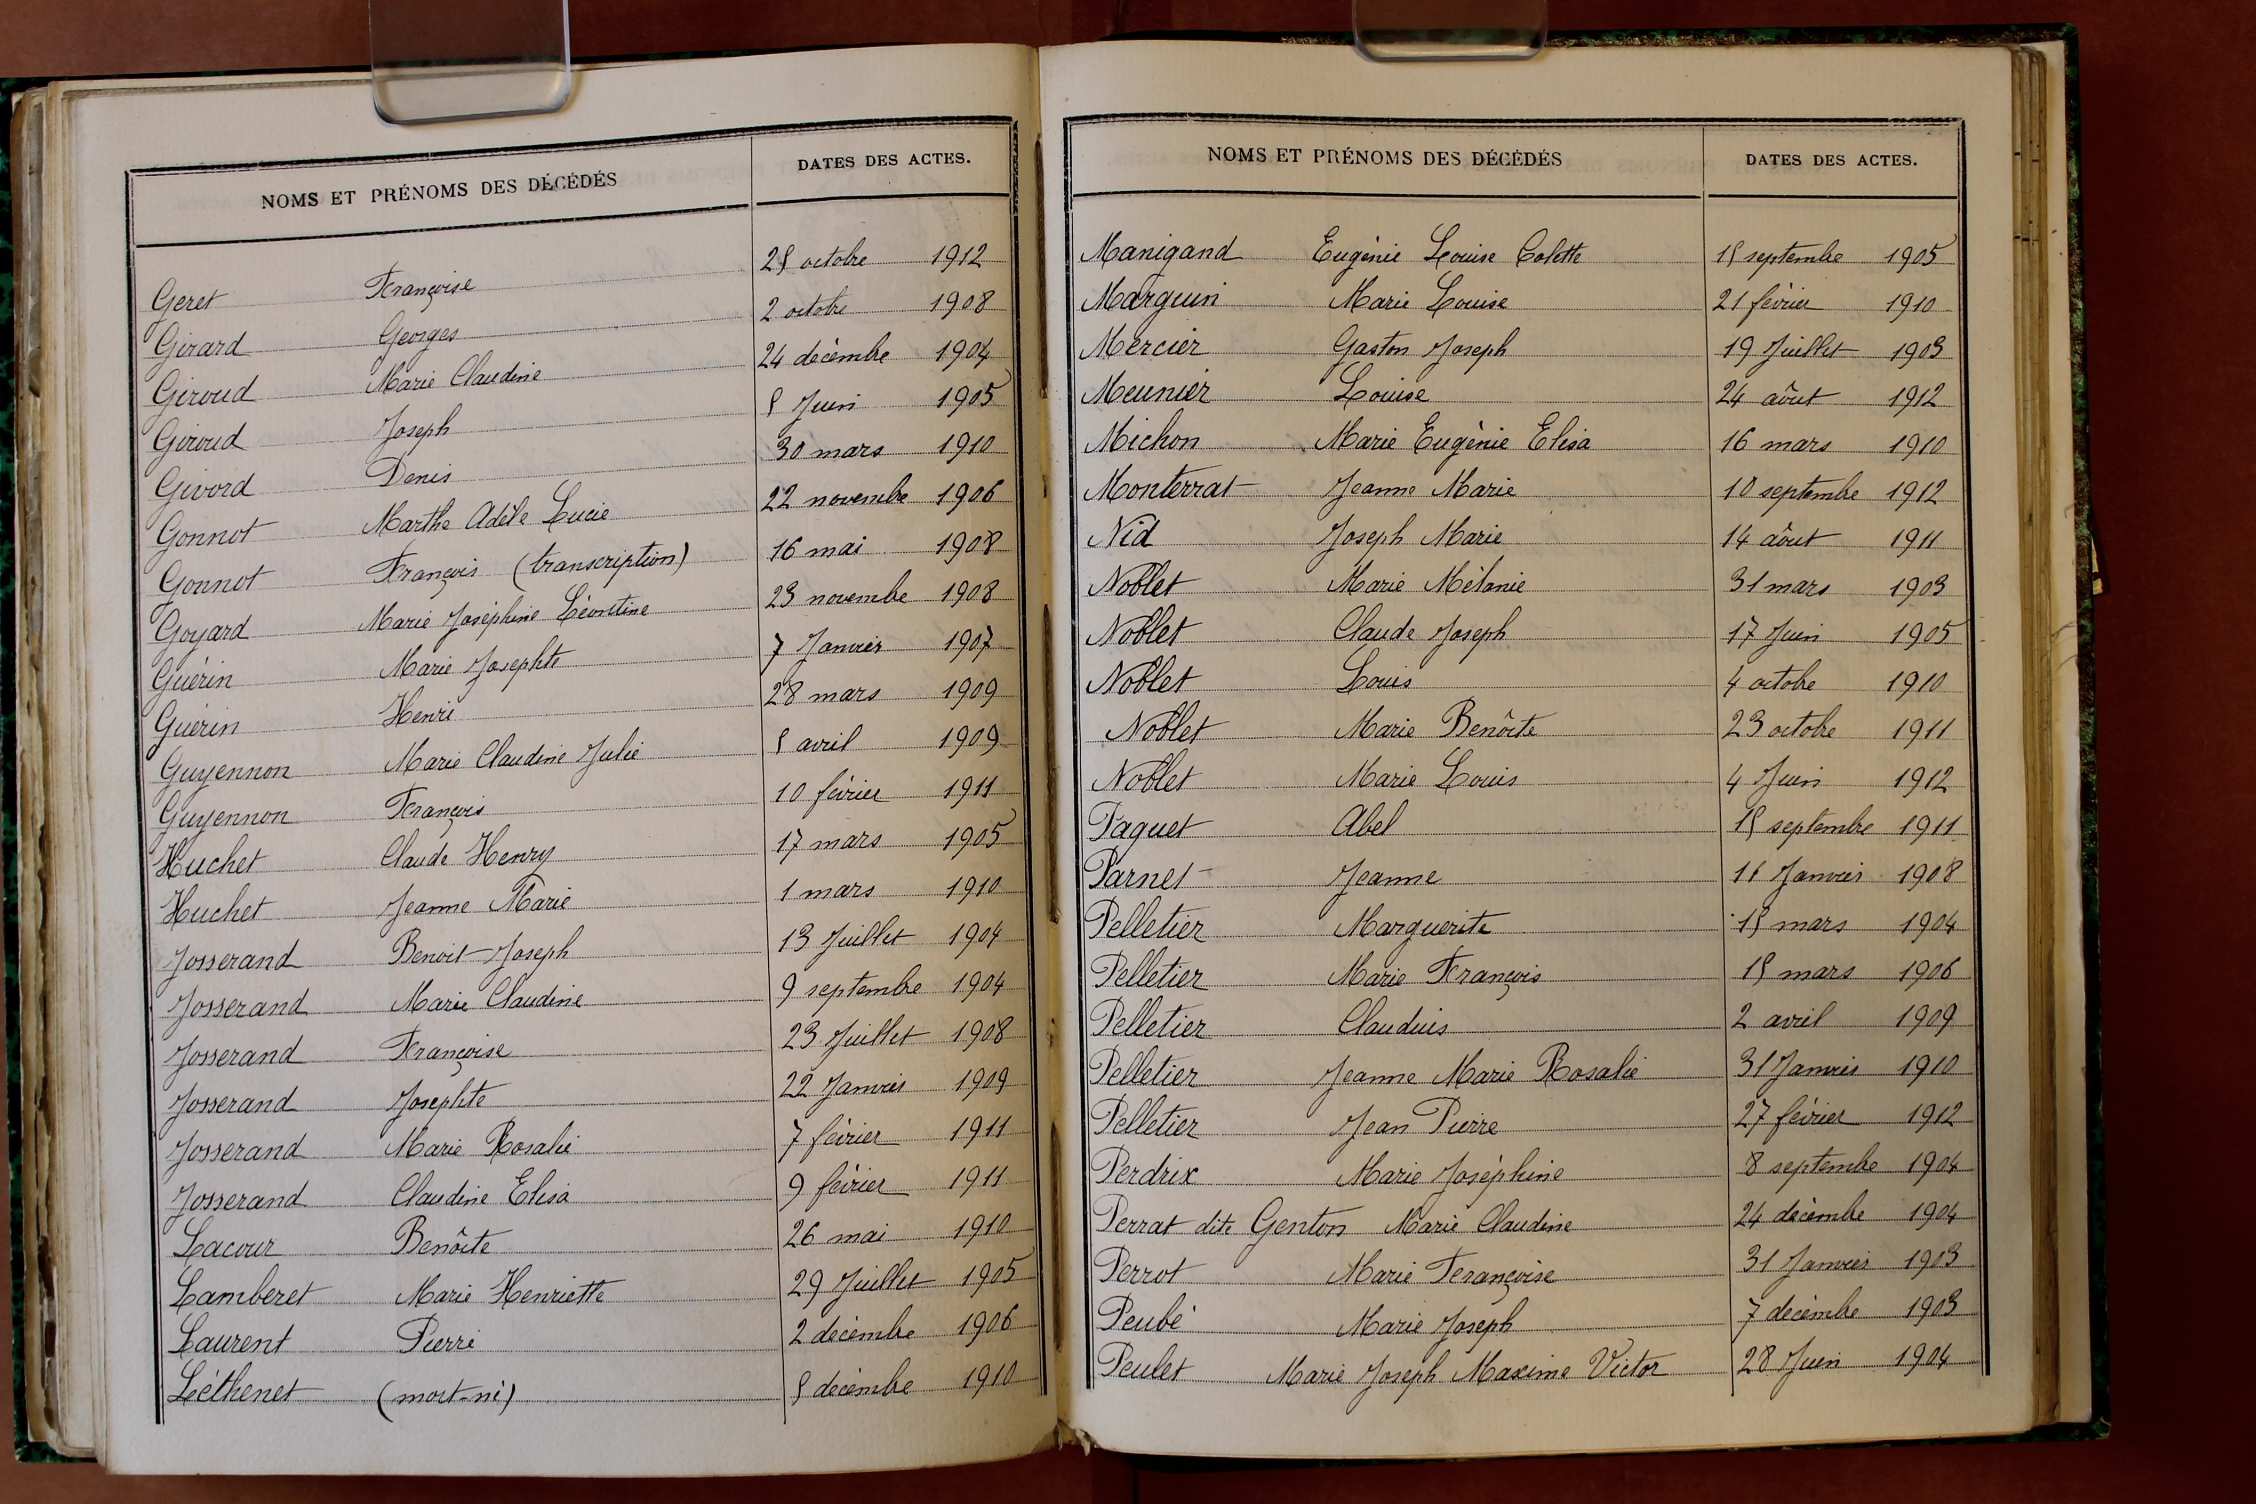 NOMS ET PRÉNOMS DES DÉCÉDÉS DATES DES ACTES.
Geret Françoise 25 octobre 1912
Girard Georges 2 octobre 1908
Giroud Marie Claudine 24 decèmbre 1904
Giroud Joseph 5 Juin 1905
Givord Denis 30 mars 1910
Gonnot Marthe Adèle Lucie 22 novembre 1906
Gonnot François (transcription) 16 mai 1908
Goyard Marie Joséphine Léontine 23 novembre 1908
Guérin Marie Josephte 7 Janvier 1907
Guérin Henri 28 mars 1909
Guyennon Marie Claudine Julie 5 avril 1909
Guyennon François 10 février 1911
Huchet Claude Henry 17 mars 1905
Huchet Jeanne Marie 1 mars 1910
Josserand Benoit Joseph 13 Juillet 1904
Josserand Marie Claudine 9 septembre 1904
Josserand Françoise 23 Juillet 1908
Josserand Josephte 22 Janvier 1909
Josserand Marie Rosalie 7 février 1911
Josserand Claudine Elisa 9 février 1911
Lacour Benôite 26 mai 1910
Lamberet Marie Henriette 29 Juillet 1905
Laurent Pierre 2 decèmbre 1906
Léthenet (mort-né) 5 decèmbre 1910
NOMS ET PRÉNOMS DES DÉCÉDÉS DATES DES ACTES.
Manigand Eugénie Louise Colette 15 septembre 1905
Marguin Marie Louise 21 février 1910
Mercier Gaston Joseph 19 Juillet 1903
Meunier Louise 24 aôut 1912
Michon Marie Eugénie Elisa 16 mars 1910
Monterrat Jeanne Marie 10 septembre 1912
Nid Joseph Marie 14 aôut 1911
Noblet Marie Mélanie 31 mars 1903
Noblet Claude Joseph 17 Juin 1905
Noblet Louis 4 octobre 1910
Noblet Marie Benôite 23 octobre 1911
Noblet Marie Louis 4 Juin 1912
Paquet Abel 15 septembre 1911
Parnet Jeanne Janvier 1908
Pelletier Marguerite 15 mars 1904
Pelletier Marie François 15 mars 1906
Pelletier Claudius 2 avril 1909
Pelletier Jeanne Marie Rosalie 31 Janvier 1910
Pelletier Jean Pierre 27 février 1912
Perdrix Marie Joséphine 8 septembre 1904
Perrat dite Genton Marie Claudine 24 decèmbre 1904
Perrot Marie Françoise 31 Janvier 1903
Peubé Marie Joseph 7 decèmbre 1903
Peulet Marie Joseph Maxime Victor 28 Juin 1904